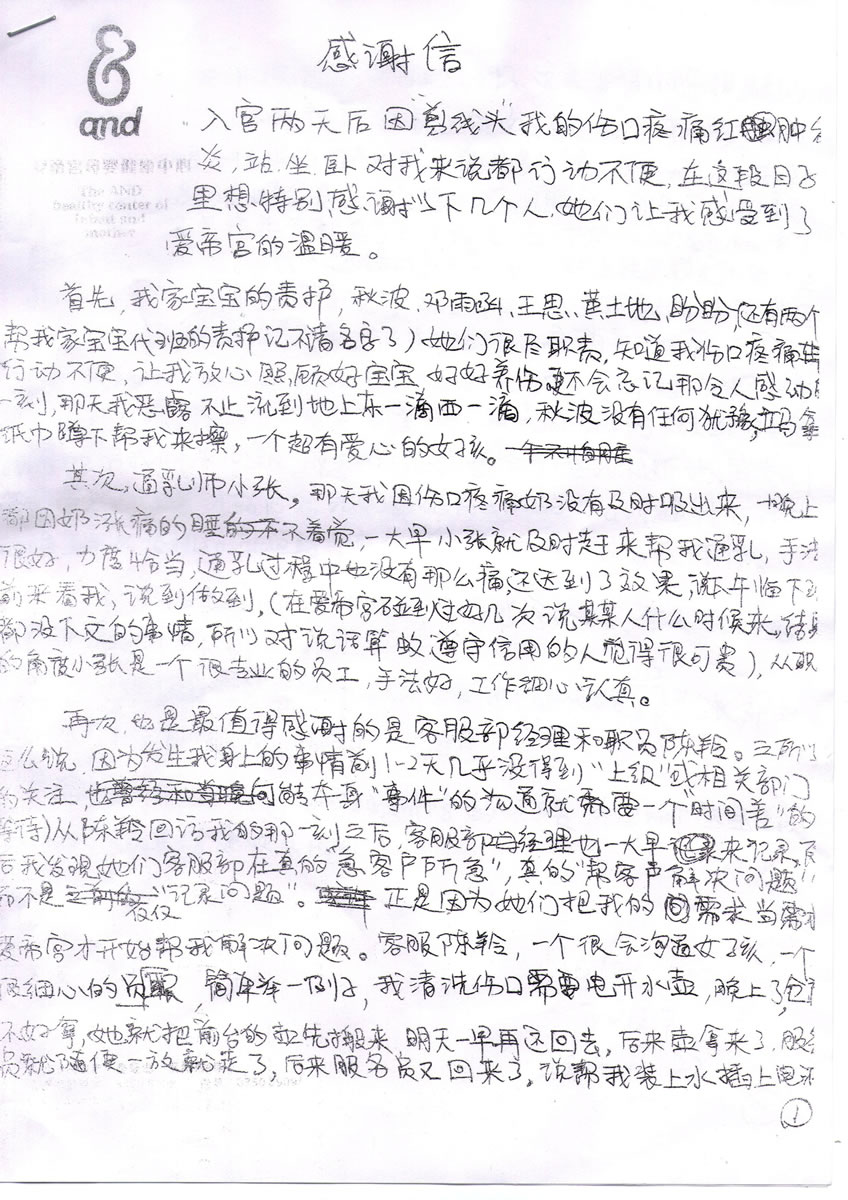 and
感谢信
入宫两天后因"剪线头"我的伤口疼痛红肿
炎,站.坐.卧对我来说都行动不便,在这段日子
里想特别感谢以下几个人,她们让我感受到了
爱帝宫的温暖。
首先,我家宝宝的责护,秋波、邓雨函、王思、黄土地、盼盼,还有两个
帮我家宝宝代班的责护记不清名字了)她们很尽职责,知道我伤口疼痛
行动不便,让我放心照顾好宝宝,好好养伤更不会忘记那令人感动的
一刻,那天我恶露不止流到地上东一滴西一滴,秋波没有任何犹豫,立马拿
纸巾蹲下帮我来擦,一个超有爱心的女孩。
其次,通乳师小张。那天我因伤口疼痛奶没有及时吸出来,一晚上
都因奶涨痛的睡不着觉,一大早小张就及时赶来帮我通乳,手法
很好,力度恰当,通乳过程中也没有那么痛,还达到了效果,说下午临下
前来看我,说到做到,(在爱帝宫碰到过好几次说某某人什么时候来,结果
都没下文的事情,所以对说话算数遵守信用的人觉得很可贵),从职
的角度小张是一个很专业的员工,手法好,工作细心认真。
再次,也是最值得感谢的是客服部经理和职员陈羚。之所以
这么说,因为发生我身上的事情前1-2天几乎没得到"上级"或相关部门
的关注,本身"事件"的沟通就需要一个"时间差"的
等待)从陈羚回访我的那一刻之后,客服部经理也一大早来记录,
后我发现她们客服部在真的"急客户所急",真的"帮客户解决问题"
而不是仅仅"记录问题"。正是因为她们把我的需求当需求
爱帝宫才开始帮我解决问题。客服陈羚,一个很会沟通女孩,一个
很细心的员工,简单举一例子,我清洗伤口需要电开水壶,晚上了,仓
不好拿,她就把前台的壶先搬来,明天一早再还回去,后来壶拿来了,服务
员就随便一放就走了,后来服务员又回来了,说帮我装上水插上电
1